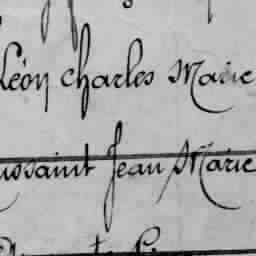 Léon Charles Marie
ussaint Jean Marie